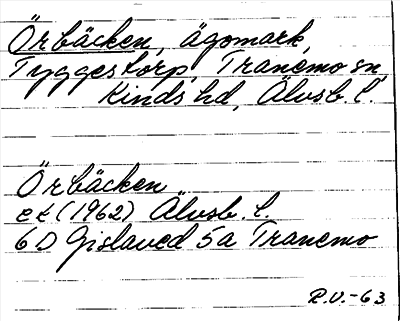 Örbäcken, ägomark,
Tyggestorp, Tranemo sn,
Kinds hd, Älvsb. l.
Örbäcken
et (1962) Älvsb. l.
6D Gislaved 5a Tranemo
R.V.-63